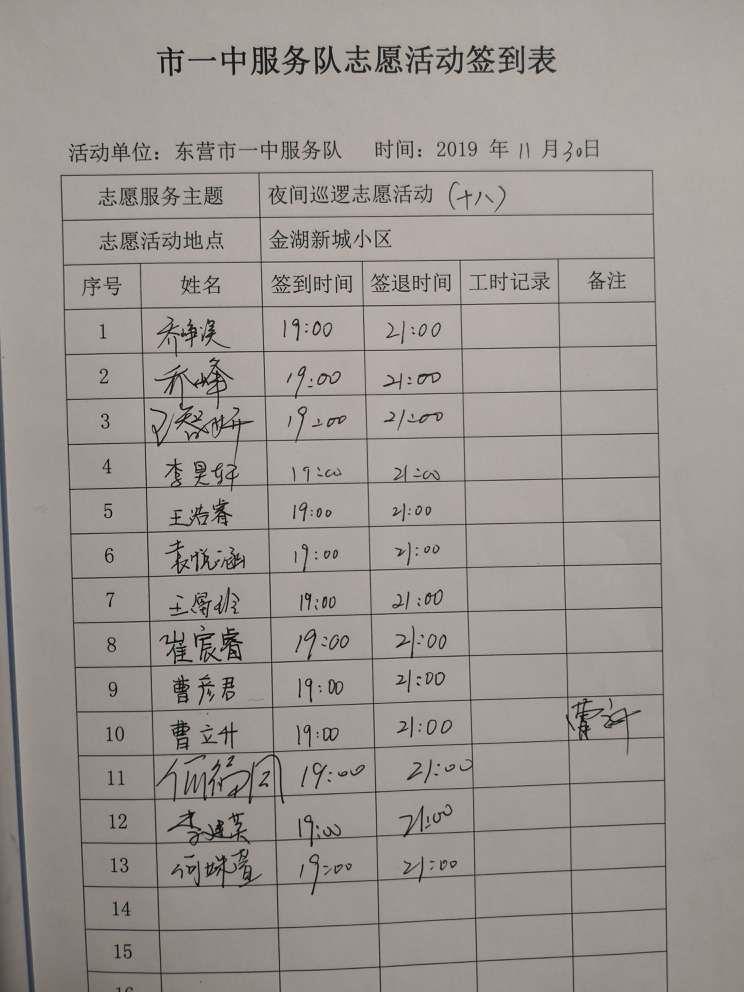 市一中服务队志愿活动签到表
活动单位：东营市一中服务队 时间：2019 年 11 月 30日
志愿服务主题 夜间巡逻志愿活动 (十八)
志愿活动地点 金湖新城小区
序号 姓名 签到时间 签退时间 工时记录 备注
1 19:00 21:00
2 乔峰 19:00 21:00
3 王智妍 19:00 21:00
4 李昊轩 19:00 21:00
5 王浩睿 19:00 21:00
6 袁悦涵 19:00 21:00
7 19:00 21:00
8 崔宸睿 19:00 21:00
9 曹彦君 19:00 21:00
10 曹立升 19:00 21:00
11 19:00 21:00
12 李建英 19:00 21:00
13 19:00 21:00
14
15
16